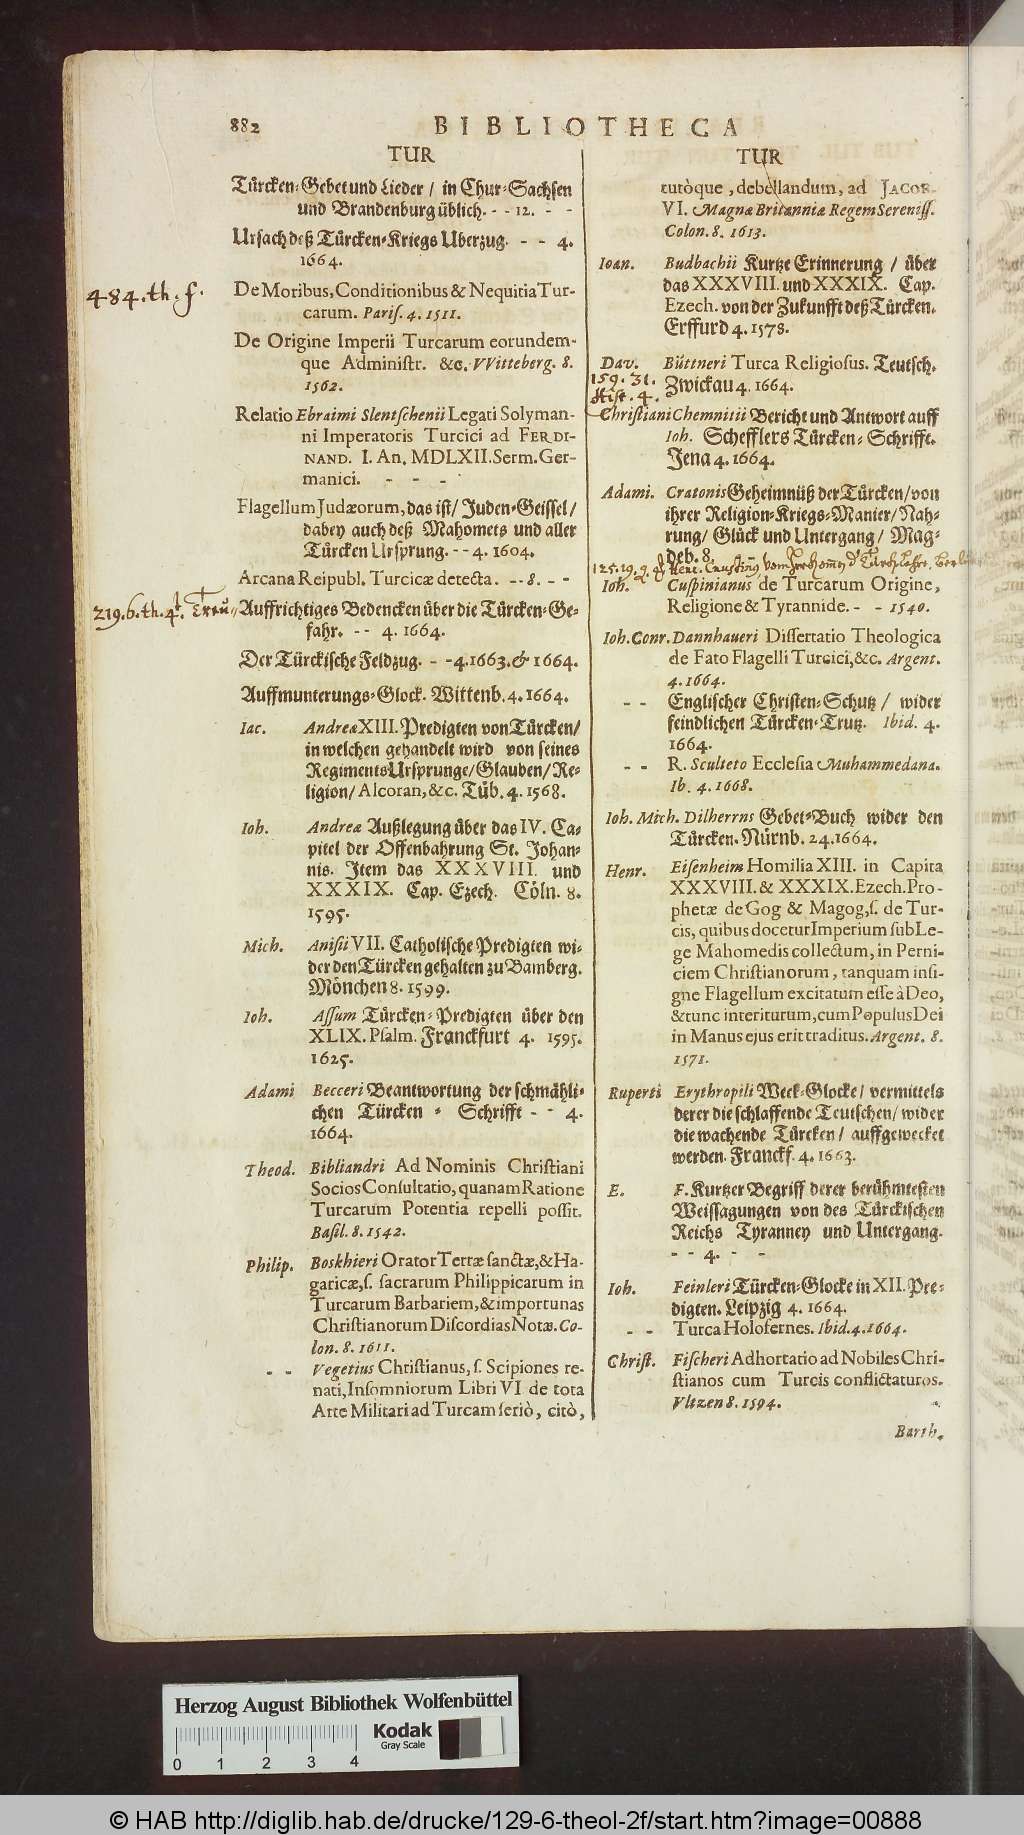 882
BIBLIOTHECA
TUR
Türcken-Gebet und Lieder / in Chur-Sachsen
und Brandenburg üblich. - - 12. - -
Ursach deß Türcken-Kriegs Uberzug. - - 4.
1664.
484.th.f.
De Moribus, Conditionibus & Nequitia Tur-
carum. Paris. 4. 1511.
De Origine Imperii Turcarum eorundem-
que Administr. &c. VVitteberg. 8.
1562.
Relatio Ebraimi Slentschenii Legati Solyman-
ni Imperatoris Turcici ad FERDI-
NAND. I. An. MDLXII. Serm. Ger-
manici. - - -
Flagellum Judæorum, das ist / Juden-Geissel /
dabey auch deß Mahomets und aller
Türcken Ursprung. - - 4. 1604.
Arcana Reipubl. Turcicæ detecta. - - 8. - -
219.6.th.4t.
Auffrichtiges Bedencken über die Türcken-Ge-
fahr. - - 4. 1664.
Der Türckische Feldzug. - - 4. 1663. & 1664.
Auffmunterungs-Glock. Wittenb. 4. 1664.
Iac. Andreæ XIII. Predigten von Türcken /
in welchen gehandelt wird von seines
Regiments Ursprunge / Glauben / Re-
ligion / Alcoran, &c. Tüb. 4. 1568.
Ioh. Andreæ Außlegung über das IV. Ca-
pitel der Offenbahrung St. Johan-
nis. Item das XXXVIII. und
XXXIX. Cap. Ezech. Cöln. 8.
1595.
Mich. Anisii VII. Catholische Predigten wi-
der den Türcken gehalten zu Bamberg.
Mönchen 8. 1599.
Ioh. Assum Türcken-Predigten über den
XLIX. Psalm. Franckfurt 4. 1595.
1625.
Adami Becceri Beantwortung der schmähli-
chen Türcken-Schrifft - - 4.
1664.
Theod. Bibliandri Ad Nominis Christiani
Socios Consultatio, quanam Ratione
Turcarum Potentia repelli possit.
Basil. 8. 1542.
Philip. Boskhieri Orator Terræ sanctæ, & Ha-
garicæ, s. sacrarum Philippicarum in
Turcarum Barbariem, & importunas
Christianorum Discordias Notæ. Co-
lon. 8. 1611.
- - Vegetius Christianus, s. Scipiones re-
nati, Insomniorum Libri VI de tota
Arte Militari ad Turcam seriò, citò,
TUR
tutòque, debellandum, ad JACOB.
VI. Magnæ Britanniæ Regem Sereniss.
Colon. 8. 1613.
Ioan. Budbachii Kurtze Erinnerung / über
das XXXVIII. und XXXIX. Cap.
Ezech. von der Zukunfft deß Türcken.
Erffurd 4. 1578.
Dav. Büttneri Turca Religiosus. Teutsch.
Zwickau 4. 1664.
159.31.
Hist. 4.
Christiani Chemnitii Bericht und Antwort auff
Ioh. Schefflers Türcken-Schrifft.
Jena 4. 1664.
Adami. Cratonis Geheimnüß der Türcken / von
ihrer Religion-Kriegs-Manier / Nah-
rung / Glück und Untergang / Mag-
deb. 8. - -
125.19.
Ioh. Cuspinianus de Turcarum Origine,
Religione & Tyrannide. - - 1540.
Ioh. Conr. Dannhaueri Dissertatio Theologica
de Fato Flagelli Turcici, &c. Argent.
4. 1664.
- - Englischer Christen-Schutz / wider
feindlichen Türcken-Trutz. Ibid. 4.
1664.
- - R. Sculteto Ecclesia Muhammedana.
Ib. 4. 1668.
Ioh. Mich. Dilherrns Gebet-Buch wider den
Türcken. Nürnb. 24. 1664.
Henr. Eisenheim Homilia XIII. in Capita
XXXVIII. & XXXIX. Ezech. Pro-
phetæ de Gog & Magog, s. de Tur-
cis, quibus docetur Imperium sub Le-
ge Mahomedis collectum, in Perni-
ciem Christianorum, tanquam insi-
gne Flagellum excitatum esse à Deo,
& tunc interiturum, cum Populus Dei
in Manus ejus erit traditus. Argent. 8.
1571.
Ruperti Erythropili Weck-Glocke / vermittels
derer die schlaffende Teutschen / wider
die wachende Türcken / auffgewecket
werden. Franckf. 4. 1663.
E. F. Kurtzer Begriff derer berühmtesten
Weissagungen von des Türckischen
Reichs Tyranney und Untergang.
- - 4. - -
Ioh. Feinleri Türcken-Glocke in XII. Pre-
digten. Leipzig 4. 1664.
- - Turca Holofernes. Ibid. 4. 1664.
Christ. Fischeri Adhortatio ad Nobiles Chri-
stianos cum Turcis conflictaturos.
Vltzen 8. 1594.
Barth.
Herzog August Bibliothek Wolfenbüttel
Kodak
Gray Scale
0 1 2 3 4
© HAB http://diglib.hab.de/drucke/129-6-theol-2f/start.htm?image=00888